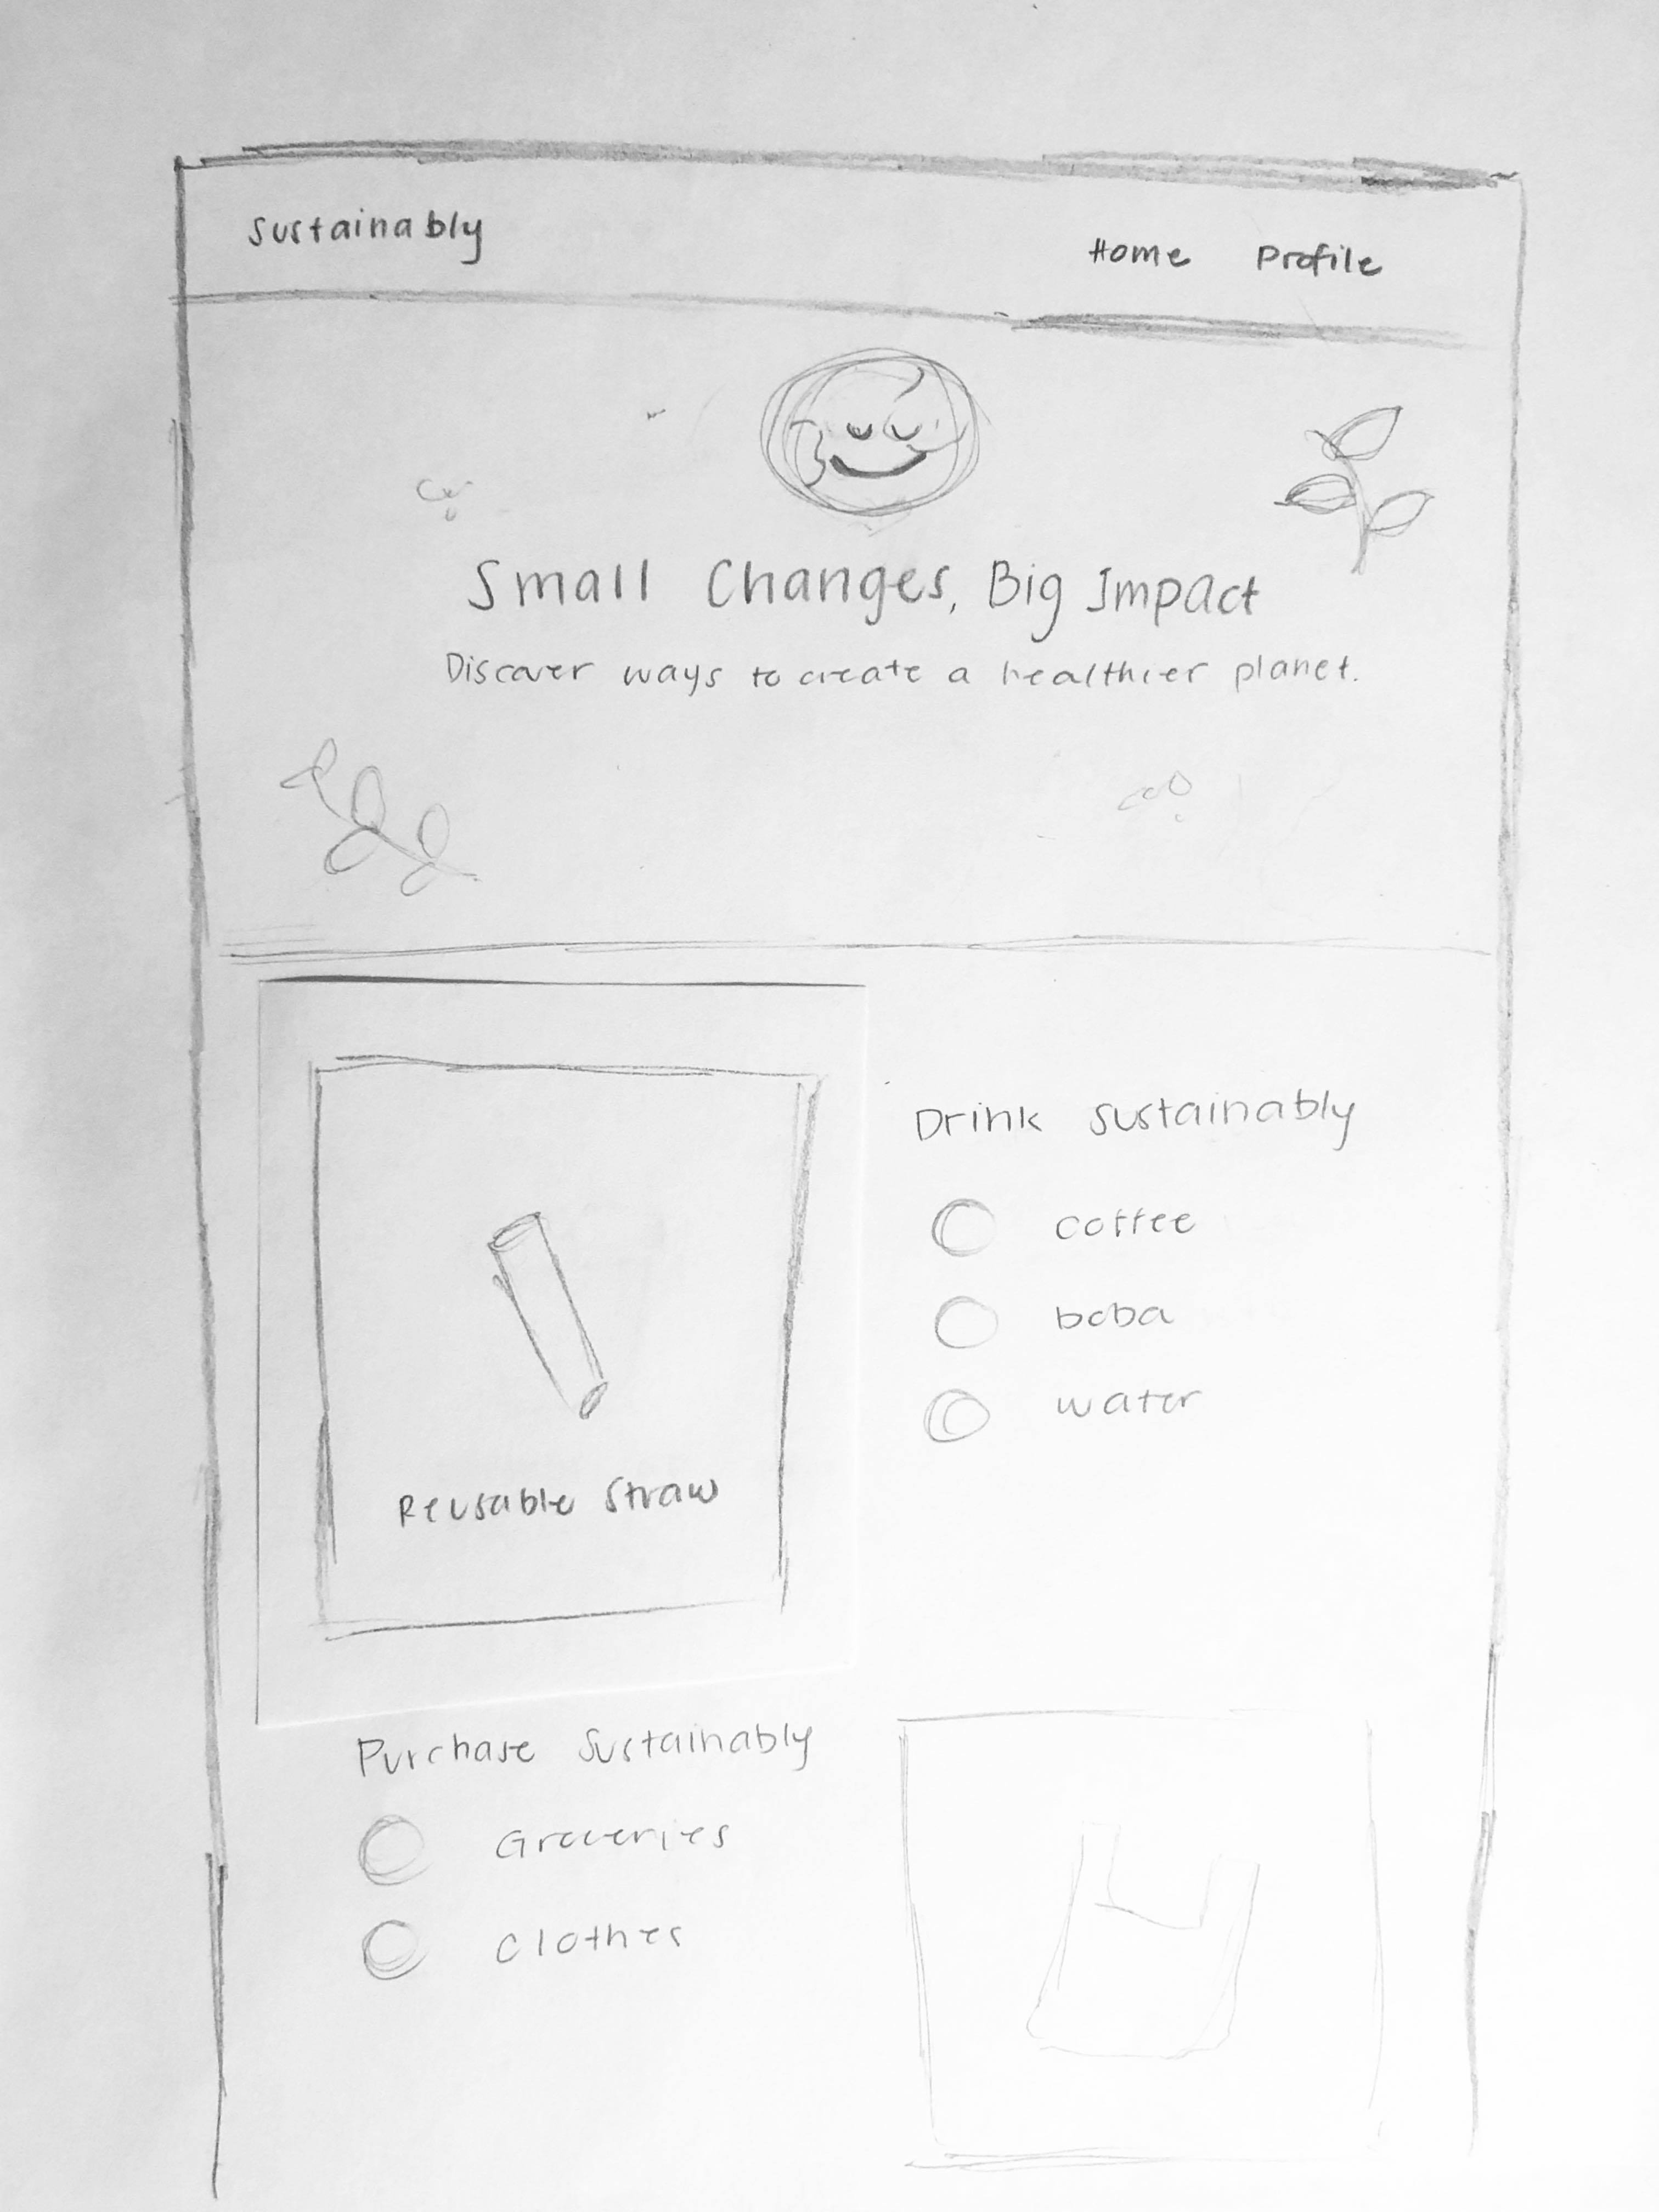 Sustainably
Home Profile
Small Changes, Big Impact
Discover ways to create a healthier planet.
Drink Sustainably
coffee
boba
water
Reusable Straw
Purchase Sustainably
Groceries
Clothes